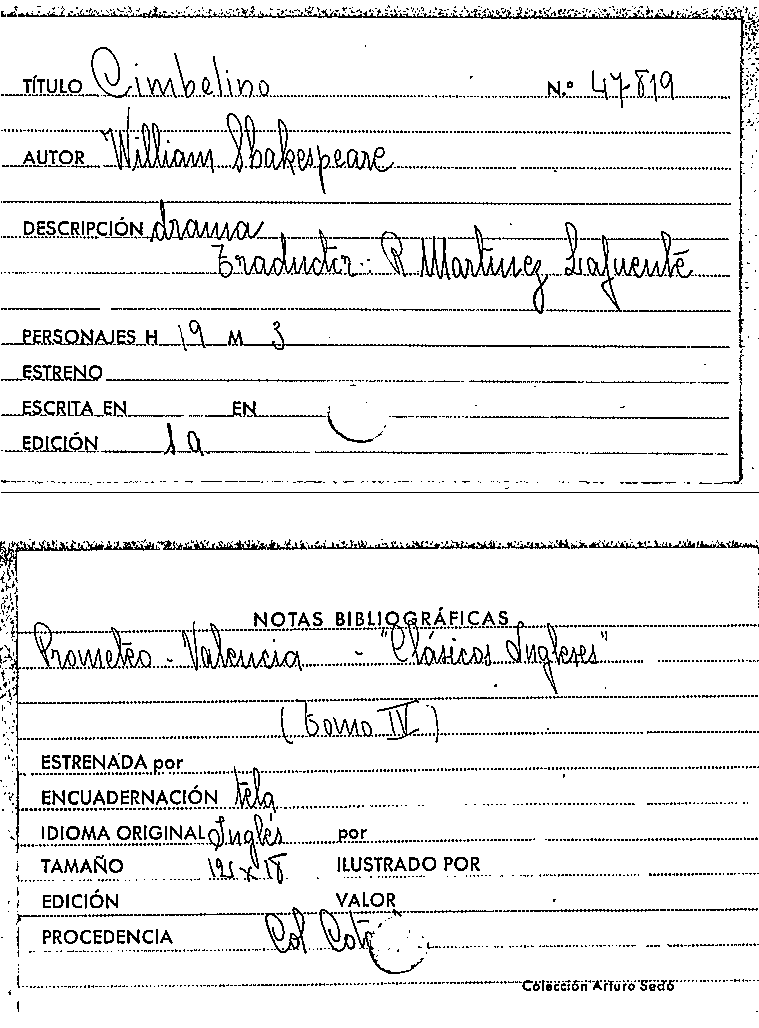 TÍTULO Cimbelino N.º 47-819
AUTOR William Shakespeare
DESCRIPCIÓN drama
Traductor: R Martinez Lafuente
PERSONAJES H 19 M 3
ESTRENO
ESCRITA EN EN
EDICIÓN 1a
NOTAS BIBLIOGRÁFICAS
Prometeo - Valencia - "Clásicos Ingleses"
(Tomo IV)
ESTRENADA por
ENCUADERNACIÓN tela
IDIOMA ORIGINAL Inglés por
TAMAÑO ILUSTRADO POR
EDICIÓN VALOR
PROCEDENCIA Col
Colección Arturo Sedó